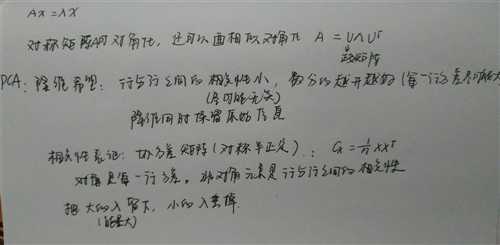 Ax = λx
对称矩阵A可对角化，还可以酉相似对角化 A = U∧Uᵀ
酉矩阵
PCA: 降维希望: 行与行之间的相关性小, 每行分的越开越好(每一行方差尽可能大
(尽可能无关)
降维同时保留原始信息
相关性表征: 协方差矩阵(对称半正定): Cx = 1/n XXᵀ
对角是每一行方差。非对角元素是行与行之间的相关性
把大的λ留下, 小的λ丢掉.
(能量大)